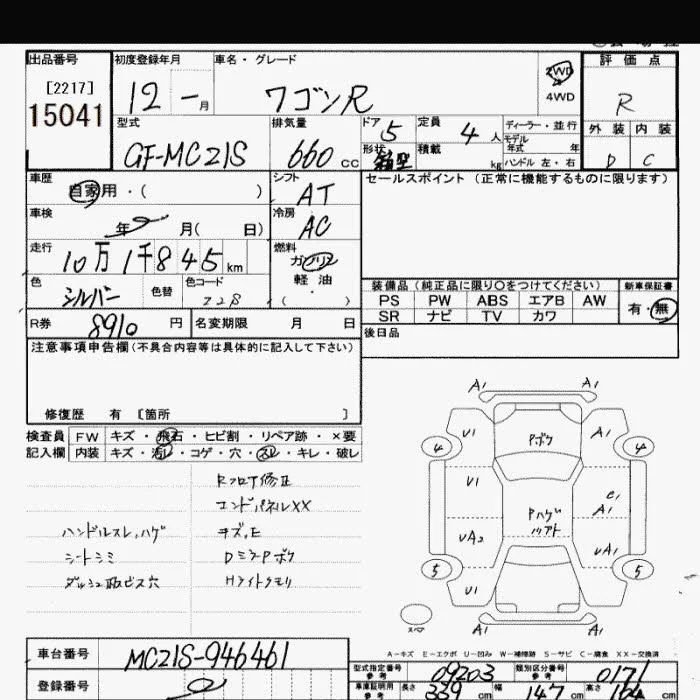 出品番号 初度登録年月 車名・グレード 評価点
[2217]
15041
12 - 月 ワゴンR 2WD R
4WD
型式 排気量 ドア 5 定員 4 人 ディーラー・並行 外装 内装
GF-MC21S 660 cc 形状 箱型 積載 kg モデル年式 年 D C
ハンドル 左・右
車歴 シフト セールスポイント (正常に機能するものに限ります)
自家用・( ) AT
車検 冷房
年 月( 日) AC
走行 燃料
10万1千845 km ガソリン
軽油
色 色替 色コード ( ・ )
シルバー Z28
装備品 (純正品に限り○をつけてください) 新車保証書
PS PW ABS エアB AW 有・無
SR ナビ TV カワ
R券 8910 円 名変期限 月 日 後日品
注意事項申告欄 (不具合内容等は具体的に記入して下さい)
修復歴 有 〔箇所 〕
検査員 FW キズ・飛石・ヒビ割・リペア跡・×要
記入欄 内装 キズ・汚レ・コゲ・穴・スレ・キレ・破レ
RフロT修正
エンドパネルXX
ハンドルスレ,ハゲ キズ,E
シートシミ DミラーPボケ
ダッシュ取ビス穴 Hライトクモリ
A1 A1
U1 Pボケ A1
4 4
U1 Pハゲ C1
A1
UA2 UA1
5 5
U1
A1 A1
スペア
A-キズ E-エクボ U-凹み W-補修跡 S-サビ C-腐食 XX-交換済
車台番号 MC21S-946461 型式指定番号 参考 09203 類別区分番号 参考 0171
登録番号 車庫証明用 参考 長さ 339 cm 幅 147 cm 高さ cm